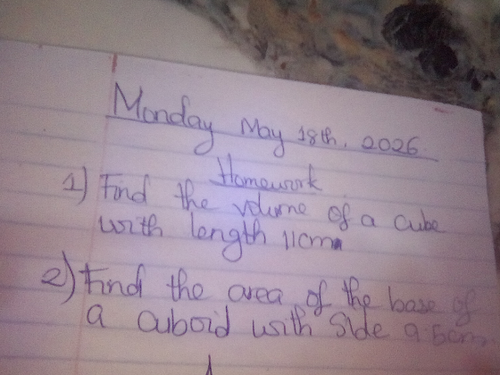 Monday May 18th, 2026.
Homework
1) Find the volume of a cube
with length 11cm
2) Find the area of the base of
a cuboid with side 9.5cm